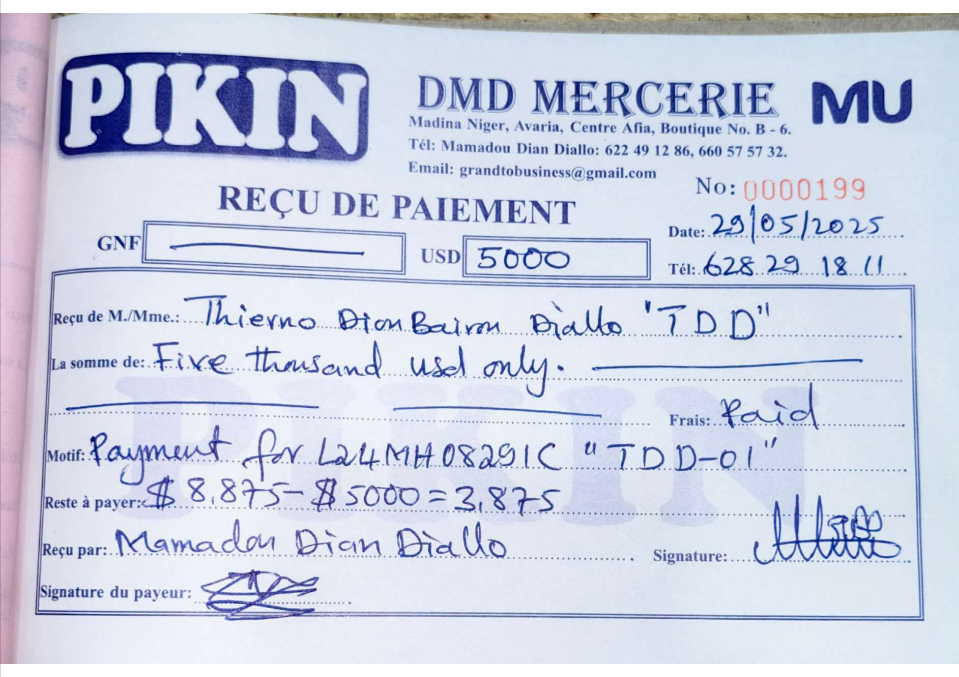 PIKIN
DMD MERCERIE MU
Madina Niger, Avaria, Centre Afia, Boutique No. B - 6.
Tél: Mamadou Dian Diallo: 622 49 12 86, 660 57 57 32.
Email: grandtobusiness@gmail.com
No: 0000199
REÇU DE PAIEMENT
Date: 29/05/2025
GNF
USD 5000
Tél: 628 29 18 11
Reçu de M./Mme.: Thierno Dian Bairon Diallo "TDD"
La somme de: Five thousand usd only.
Frais: Paid
Motif: Payment for L24MH08291C "TDD-01"
Reste à payer: $ 8,875 - $ 5000 = 3,875
Reçu par: Mamadou Dian Diallo Signature:
Signature du payeur:
PIKIN